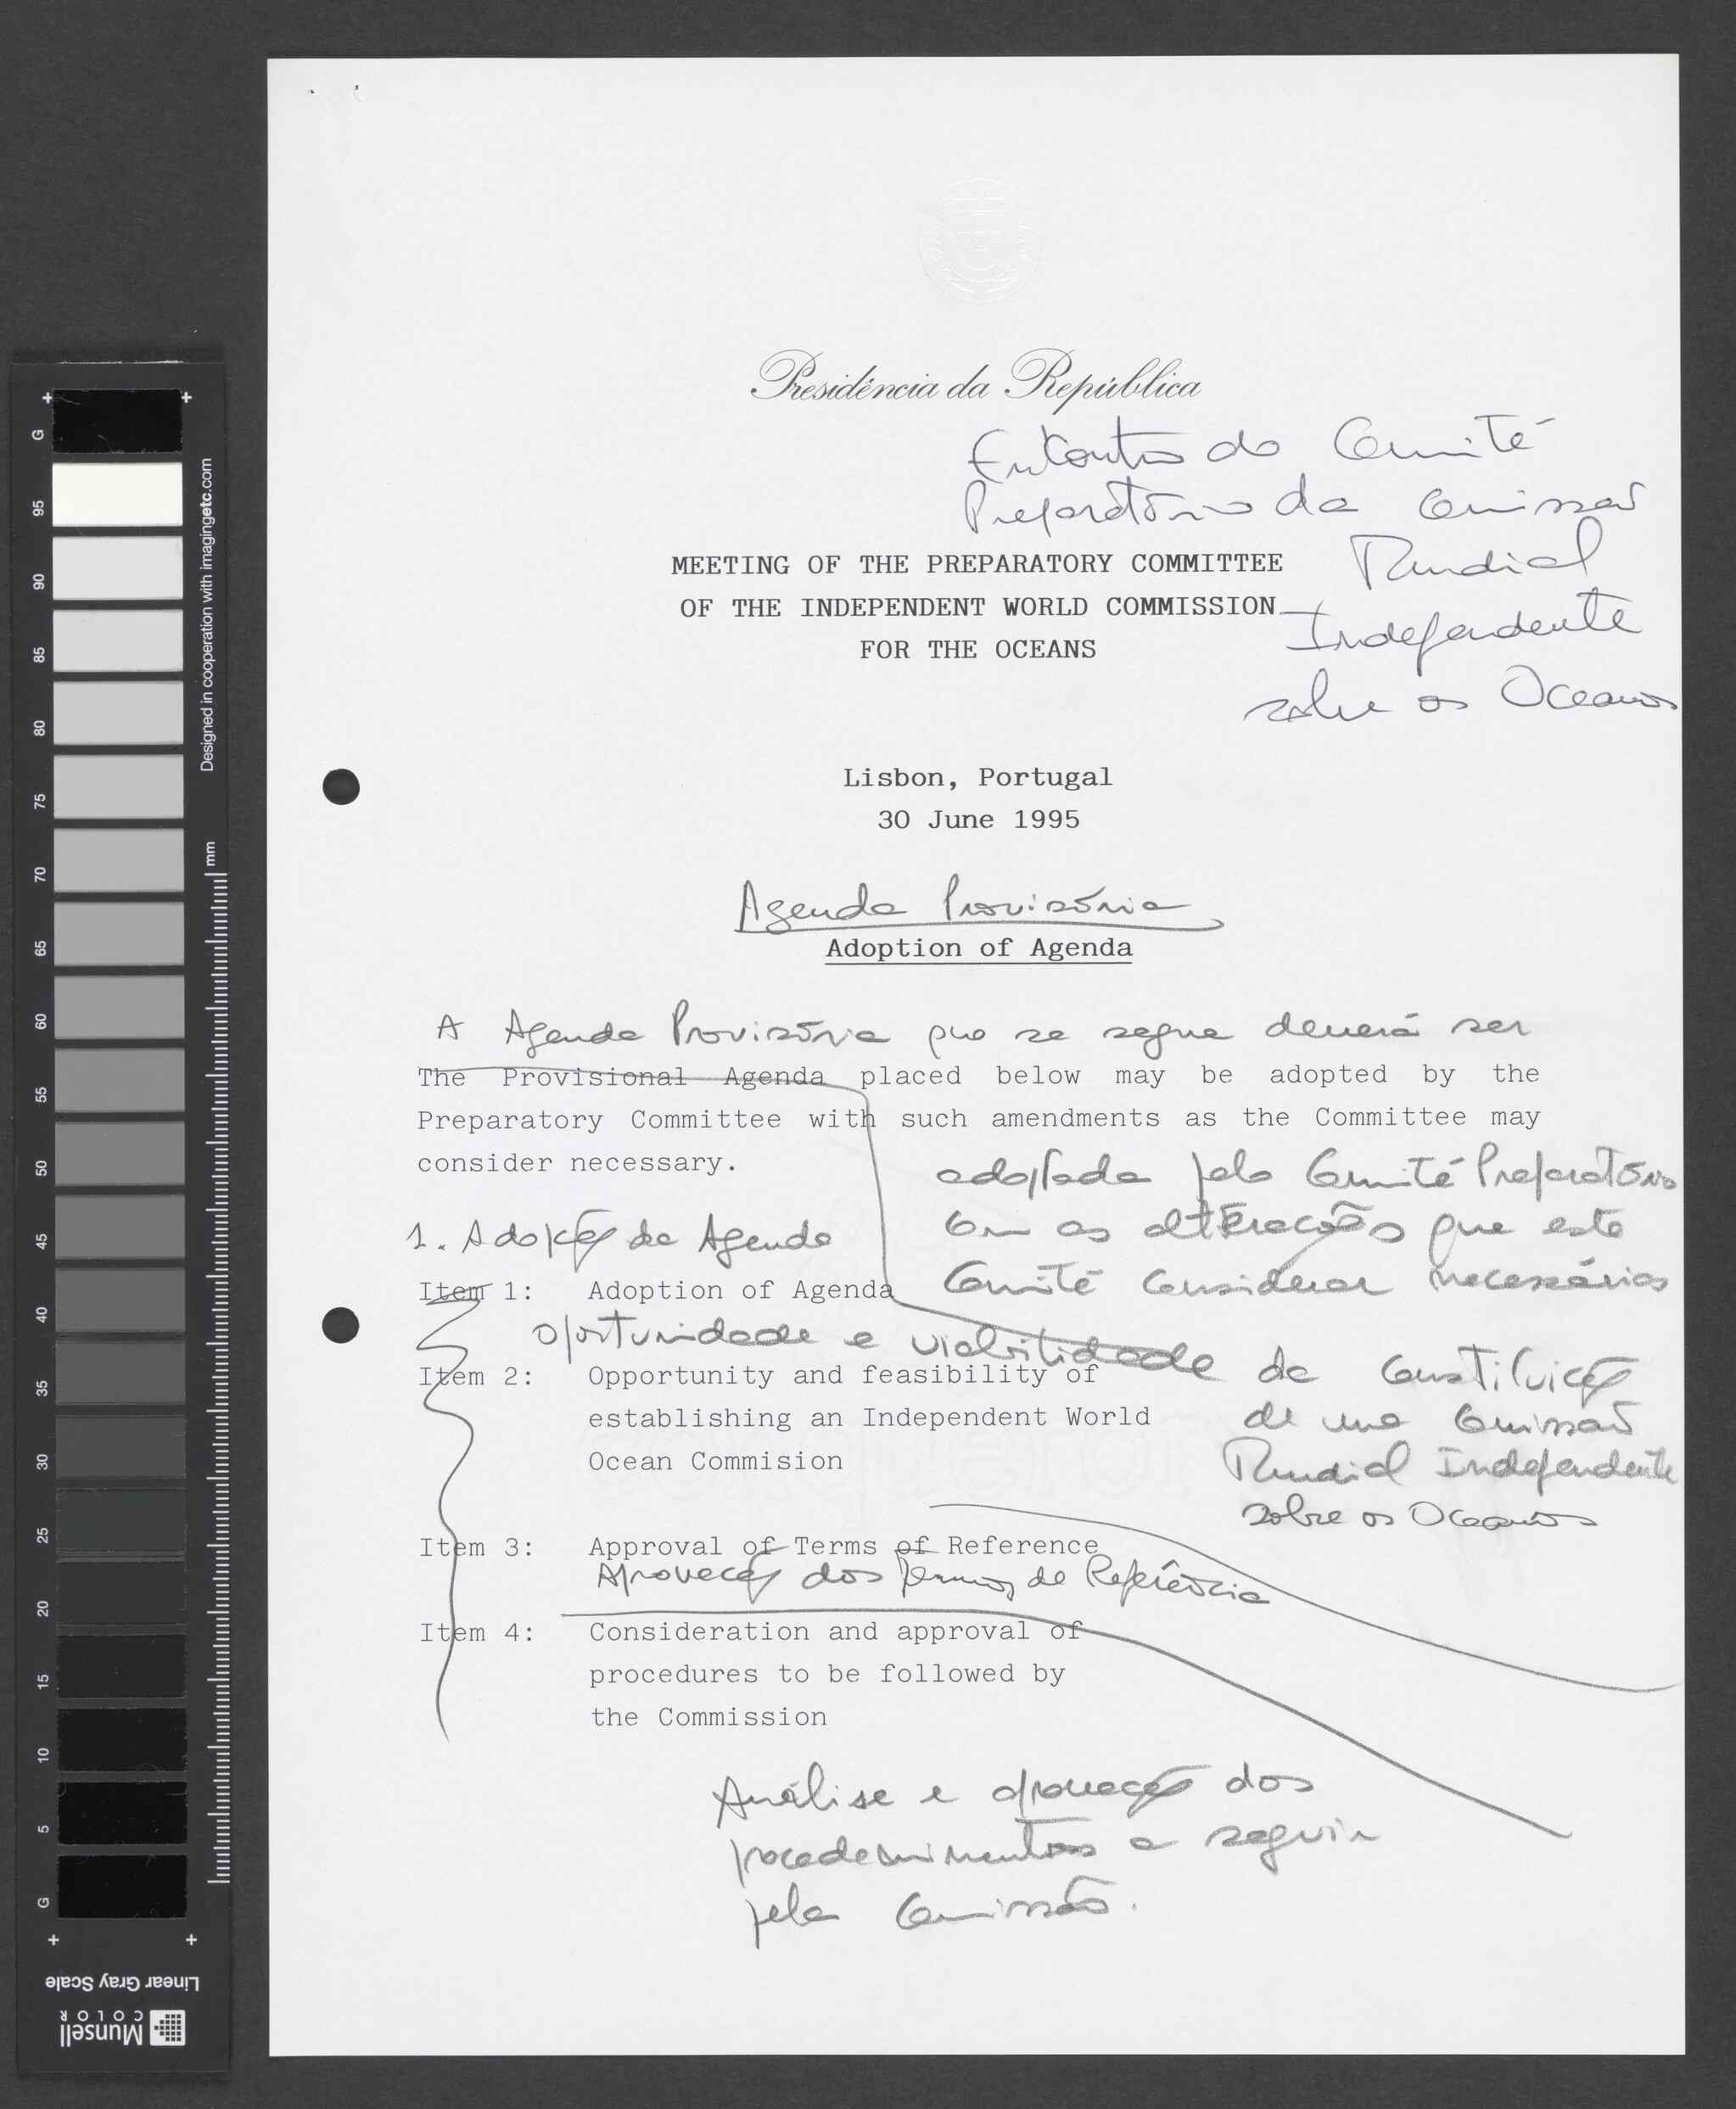 Presidência da República
Encontro do Comité
Preparatório da Comissão
MEETING OF THE PREPARATORY COMMITTEE
Mundial
OF THE INDEPENDENT WORLD COMMISSION
Independente
FOR THE OCEANS
sobre os Oceanos
Lisbon, Portugal
30 June 1995
Agenda Provisória
Adoption of Agenda
A Agenda Provisória que se segue deverá ser
The Provisional Agenda placed below may be adopted by the
Preparatory Committee with such amendments as the Committee may
consider necessary.
adoptada pelo Comité Preparatório
com as alterações que este
Comité considerar necessárias
1. Adopção da Agenda
Item 1: Adoption of Agenda
Oportunidade e viabilidade da constituição
de uma Comissão
Mundial Independente
sobre os Oceanos
Item 2: Opportunity and feasibility of
establishing an Independent World
Ocean Commision
Item 3: Approval of Terms of Reference
Aprovação dos Termos de Referência
Item 4: Consideration and approval of
procedures to be followed by
the Commission
Análise e aprovação dos
procedimentos a seguir
pela Comissão.
G
95
90
85
80
75
70
65
60
55
50
45
40
35
30
25
20
15
10
5
G
Designed in cooperation with imagingetc.com
mm
Linear Gray Scale
Munsell
COLOR